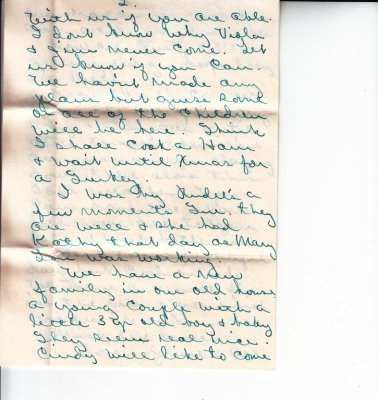 2.
with us if you are able.
I dont know why Viola
& Jim never come. Let
us know if you can.
We havn't made any
plans but guess some
or all of the Children
will be here. I think
I shall Cook a Ham
& wait until Xmas for
a Turkey.
I was by a
few moments Tue. they
are well & she had
Kathy that day as Mary
Lou was working.
We have a new
family in our old house
a young couple with a
little 3 yr old boy & baby
They seem real nice.
Cindy will like to come